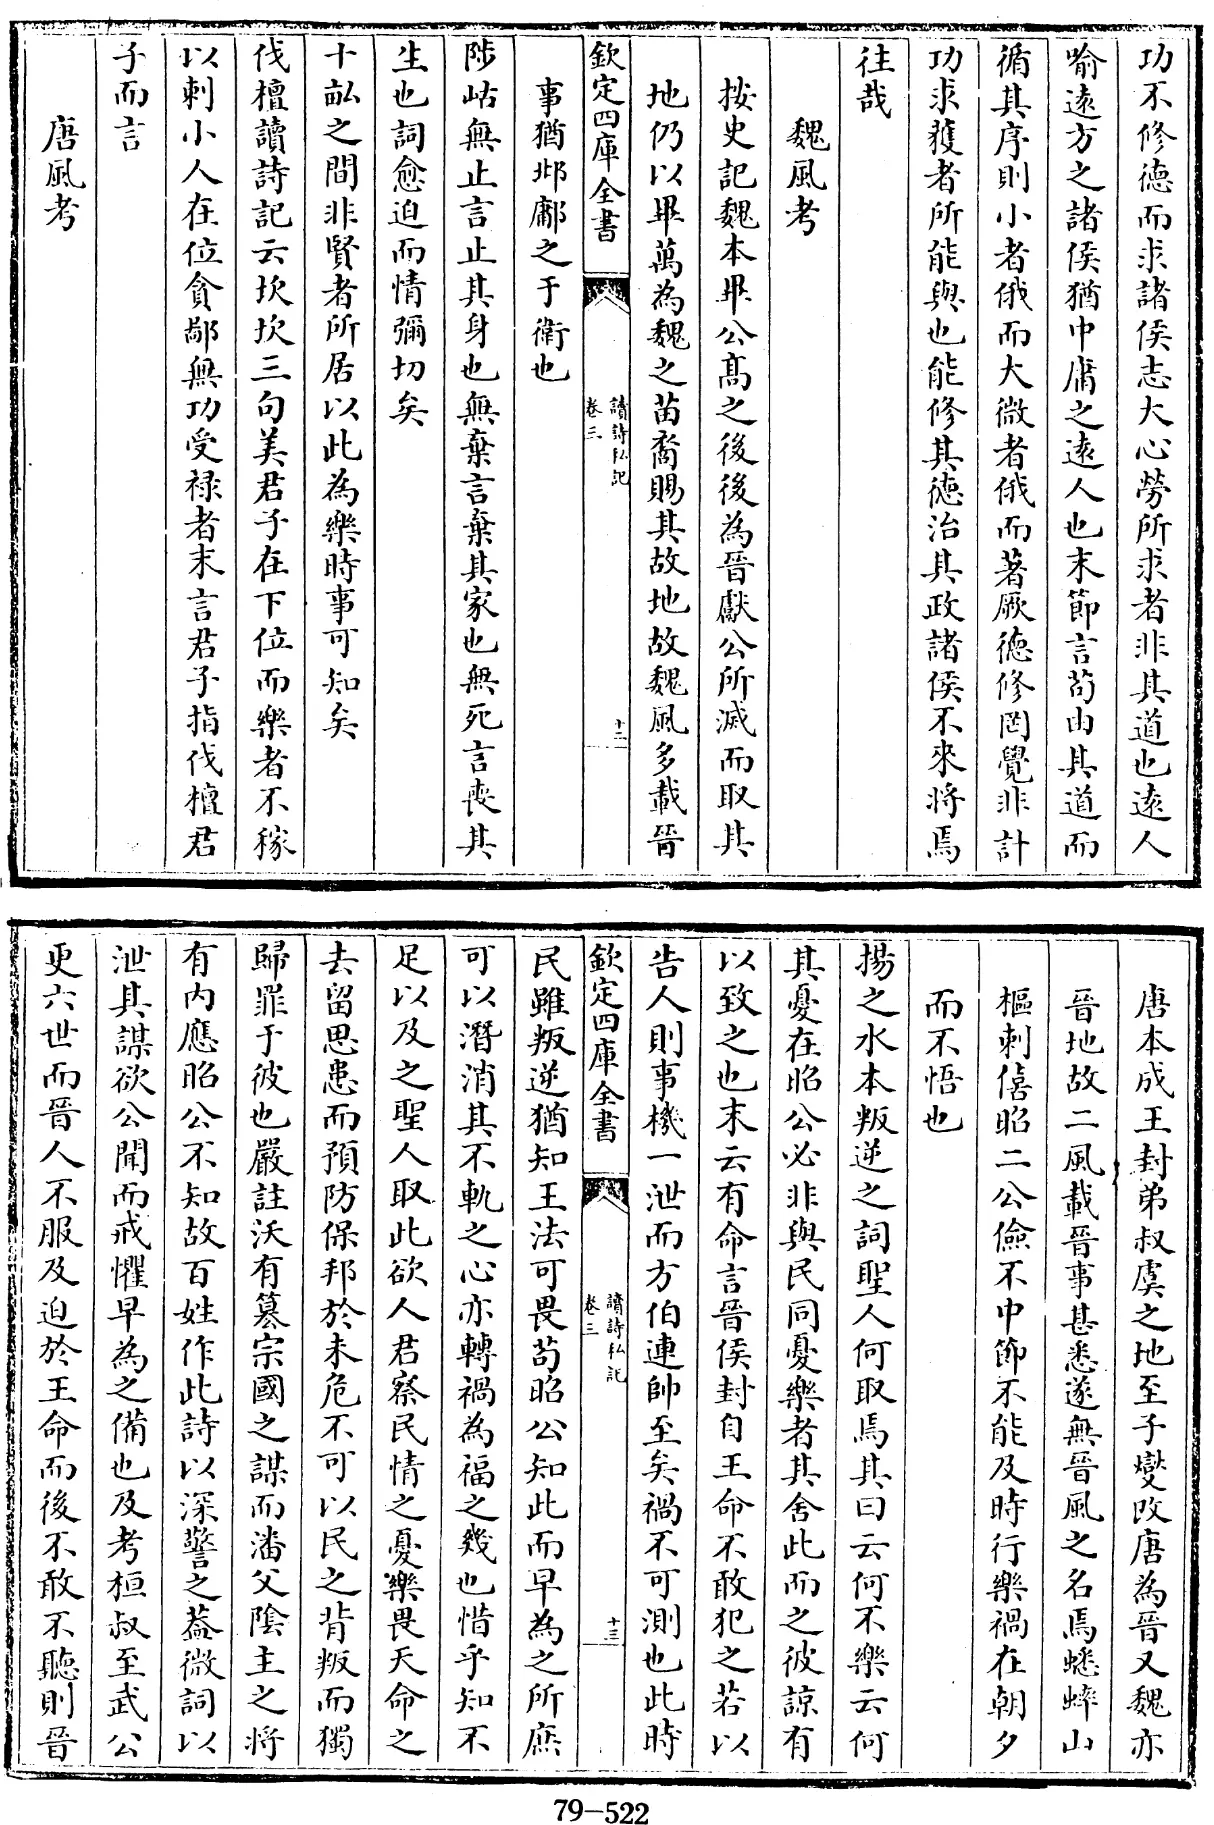 功不修德而求諸侯志大心勞所求者非其道也遠人
喻遠方之諸侯猶中庸之遠人也末節言苟由其道而
循其序則小者俄而大微者俄而著厥德修罔覺非計
功求獲者所能與也能修其徳治其政諸侯不來將焉
往哉
魏風考
按史記魏本畢公髙之後後為晉獻公所滅而取其
地仍以畢萬為魏之苗裔賜其故地故魏風多載晉
欽定四庫全書
讀詩私記
卷三
十二
事猶邶鄘之于衛也
陟岵無止言止其身也無棄言棄其家也無死言喪其
生也詞愈迫而情彌切矣
十畝之間非賢者所居以此為樂時事可知矣
伐檀讀詩記云坎坎三句美君子在下位而樂者不稼
以刺小人在位貪鄙無功受禄者末言君子指伐檀君
子而言
唐風考
唐本成王封弟叔虞之地至子燮改唐為晉又魏亦
晉地故二風載晉事甚悉遂無晉風之名焉蟋蟀山
樞刺僖昭二公儉不中節不能及時行樂禍在朝夕
而不悟也
揚之水本叛逆之詞聖人何取焉其曰云何不樂云何
其憂在昭公必非與民同憂樂者其舍此而之彼諒有
以致之也末云有命言晉侯封自王命不敢犯之若以
告人則事機一泄而方伯連帥至矣禍不可測也此時
欽定四庫全書
讀詩私記
卷三
十三
民雖叛逆猶知王法可畏苟昭公知此而早為之所庶
可以潛消其不軌之心亦轉禍為福之幾也惜乎知不
足以及之聖人取此欲人君察民情之憂樂畏天命之
去留思患而預防保邦於未危不可以民之背叛而獨
歸罪于彼也嚴註沃有簒宗國之謀而潘父隂主之將
有内應昭公不知故百姓作此詩以深警之葢微詞以
泄其謀欲公聞而戒懼早為之備也及考桓叔至武公
更六世而晉人不服及迫於王命而後不敢不聽則晉
79-522